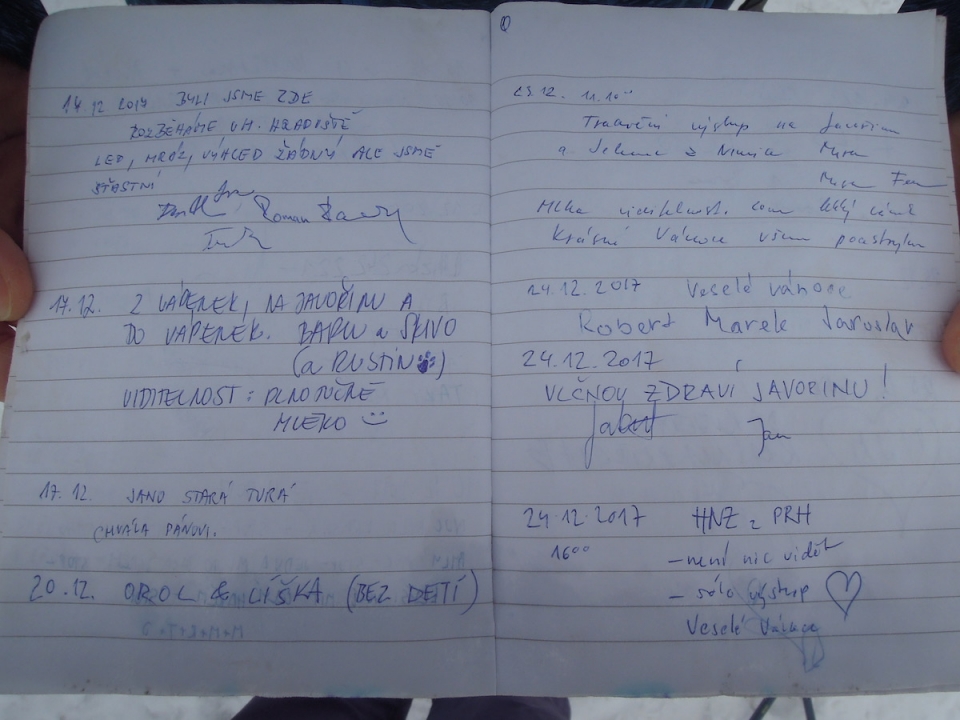 14.12 2017 BYLI JSME ZDE
ROZBĚHÁME UH. HRADIŠTĚ
LED, MRÁZ, VÝHLED ŽÁDNÝ ALE JSME
ŠŤASTNÍ
Roman
17.12. Z VÁPENEK, NA JAVOŘINU A
DO VÁPENEK.
(a RUSTIN)
VIDITELNOST: PLNOTUČNÉ
MLÉKO
17.12. JANO STARÁ TURÁ
CHVÁLA PÁNOVI.
20.12. OROL & LÍŠKA (BEZ DETÍ)
23.12. 11.10
Tradiční výstup na Javořinu
a z
Mlha viditelnost
Krásné Vánoce všem
24.12.2017 Veselé vánoce
Robert Marek Jaroslav
24.12.2017
VLČNOV ZDRAVÍ JAVORINU!
Jan
24.12.2017 HNZ z PRH
16⁰⁰ - není nic vidět
- sólo výstup
Veselé Vánoce